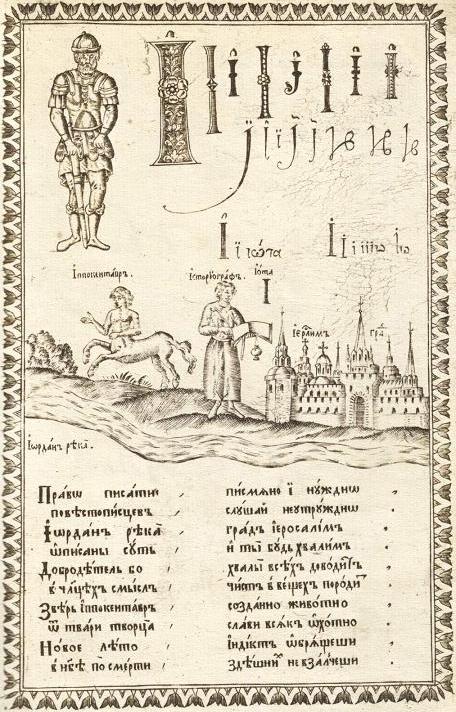 І ї іѡ́та
їппокентавръ.
їсторїографъ.
їота
І
їерⷭ҇лимъ граⷣ
Їѡрданъ рѣка̀.
Пра́вѡ писа́ти писмѧно ї нꙋ́ждно
повѣстопи́сцевъ слꙋ́шай неꙋтрꙋ́ждно
Їѡрда́нъ рѣка̀ гра́дъ їеросали́мъ
ѡпи́саны сꙋ́ть и ты̀ бꙋ́дь хвали́мъ
Добродѣ́тель бо хвалы̀ всѣ́хъ дово́дитъ
в чл҃цѣхъ смы́слъ чи́стъ в ве́щехъ поро́дитъ
Ѕвѣ́рь їппокента́връ созда́нно живо́тно
ѿ тва́ри творца̀ сла́ви всѧ́къ ѡхо́тно
Но́вое лѣ́то їндїктъ ѡбрѧ́щеши
в нб҃ѣ по сме́рти здѣ́шниⷯ не взалчеши